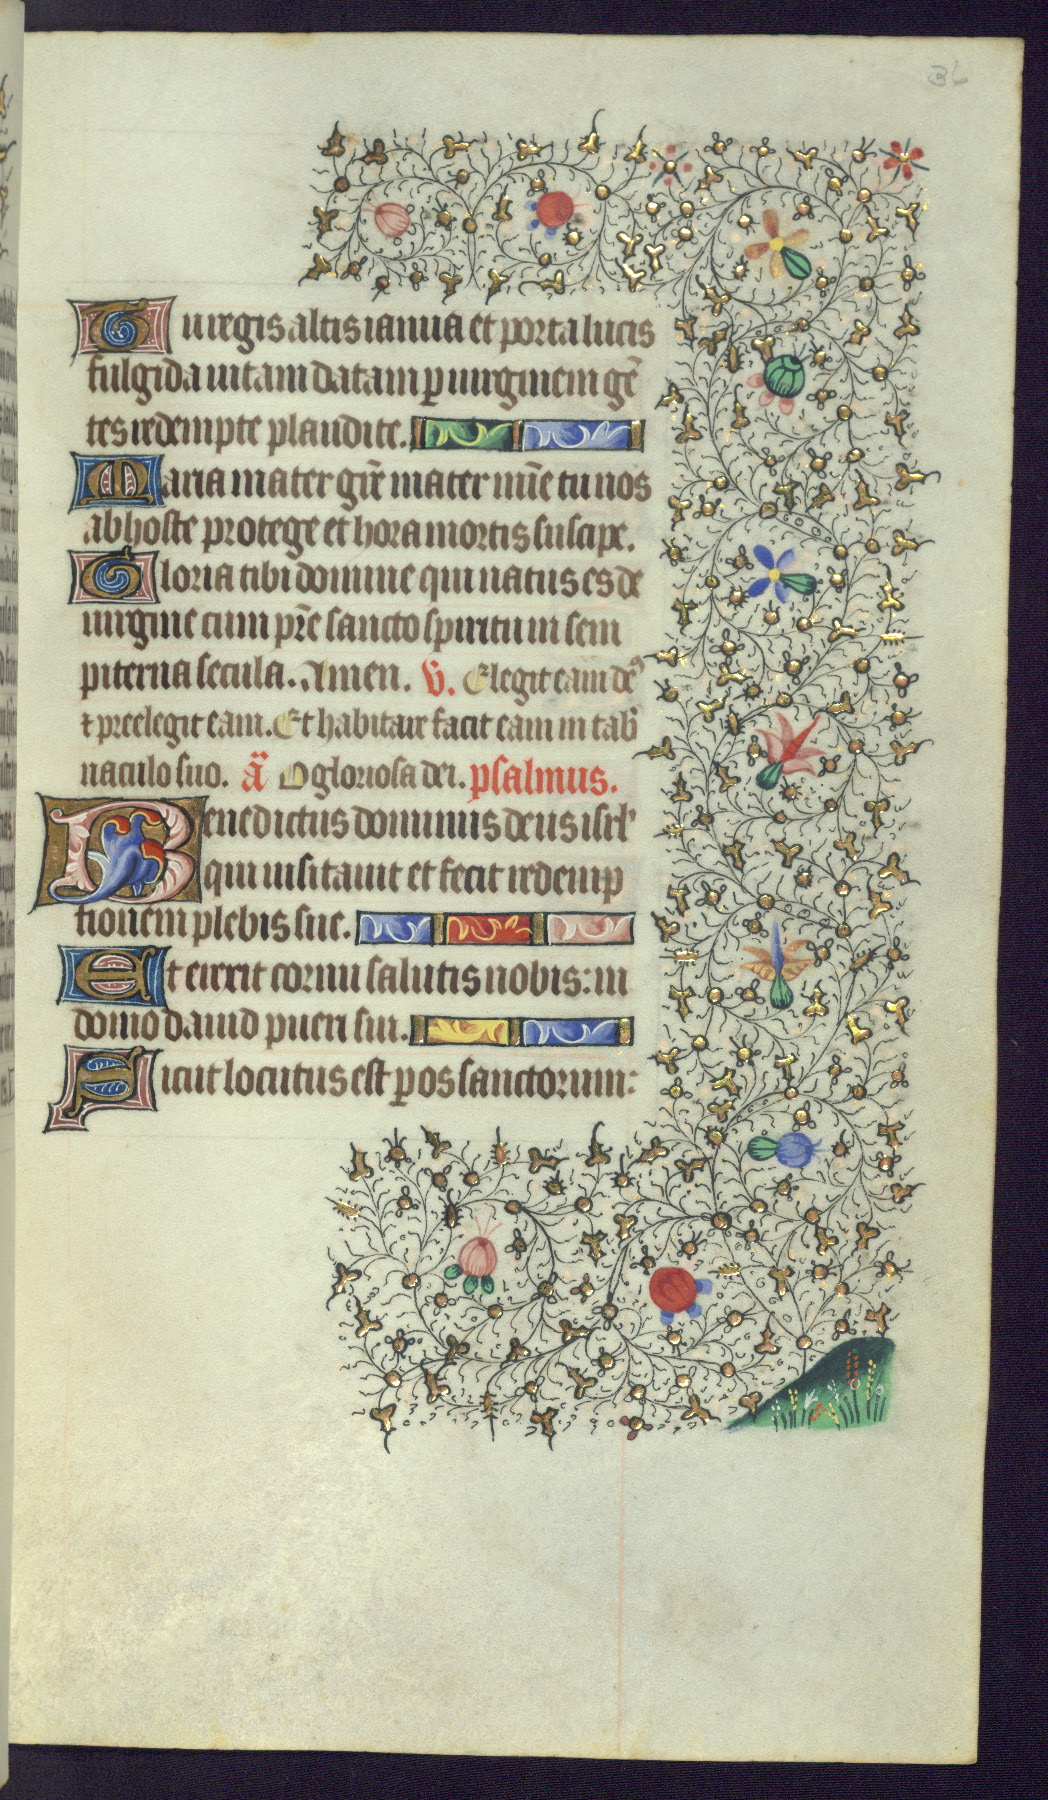 36
Tu regis altis ianua et porta lucis
fulgida uitam datam p uirginem gē
tes redempte plaudite.
Maria mater gr̄e mater mīe tu nos
ab hoste protege et hora mortis suscipe.
Gloria tibi domine qui natus es de
uirgine cum pr̄e sancto spiritu in sem
piterna secula. Amen. v̄. Elegit eam de9
⁊ preelegit eam. Et habitare facit eam in tab
naculo suo. ā O gloriosa dei. psalmus.
Benedictus dominus deus isrl'
qui uisitauit et fecit redemp
tionem plebis sue.
Et erexit cornu salutis nobis: in
domo dauid pueri sui.
Sicut locutus est p os sanctorum: